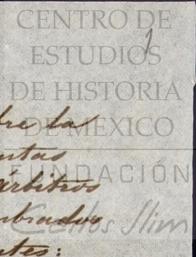 CENTRO DE
ESTUDIOS
DE HISTORIA
DE MÉXICO
FUNDACIÓN
Carlos Slim
bre la
entas
árbitros
mbrados
ntes: